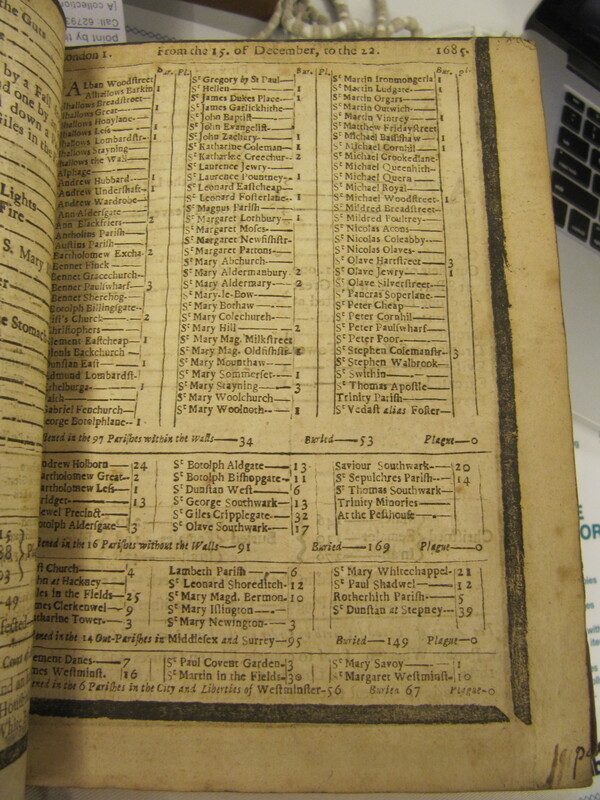 London 1. From the 15. of December, to the 22. 1685.
Bur. Pl.
Alban Woodstreet
Alhallows Barkin 1
Alhallows Breadstreet
Alhallows Great 1
Alhallows Honylane
Alhallows Less 1
Alhallows Lombardstr- 1
Alhallows Stayning
Alhallows the Wall
Alphage
Andrew Hubbard 1
Andrew Undershaft 1
Andrew Wardrobe
Ann Aldersgate
Ann Blackfriers 2
Antholins Parish
Austins Parish
Bartholomew Excha- 2
Bennet Finck
Bennet Gracechurch
Bennet Paulswharf 3
Bennet Sherehog
Botolph Billingsgate
Christ's Church 2
Christophers
Clement Eastcheap 1
Dionis Backchurch
Dunstan East 1
Edmund Lombardst-
Ethelburga 1
Faith
Gabriel Fenchurch
George Botolphlane 1
Bur. Pl.
St Gregory by St Paul
St Hellen 1
St James Dukes Place 1
St James Garlickhithe
St John Baptist
St John Evangelist
St John Zachary 1
St Katharine Coleman 1
St Katharine Creechur- 2
St Laurence Jewry
St Laurence Pountney 1
St Leonard Eastcheap
St Leonard Fosterlane 1
St Magnus Parish
St Margaret Lothbury 1
St Margaret Moses
St Margaret Newfishstr-
St Margaret Pattons
St Mary Abchurch
St Mary Aldermanbury 2
St Mary Aldermary 2
St Mary-le-Bow
St Mary Bothaw
St Mary Colechurch
St Mary Hill 2
St Mary Mag. Milkstreet
St Mary Mag. Oldfishstr-
St Mary Mounthaw
St Mary Sommerset 1
St Mary Stayning 3
St Mary Woolchurch
St Mary Woolnoth 1
Bur. Pl.
St Martin Ironmongerla 1
St Martin Ludgate 1
St Martin Orgars
St Martin Outwich
St Martin Vintrey 1
St Matthew Fridaystreet
St Michael Bassishaw 1
St Michael Cornhil 1
St Michael Crookedlane
St Michael Queenhith
St Michael Quern
St Michael Royal
St Michael Woodstreet 1
St Mildred Breadstreet
St Mildred Poultrey
St Nicolas Acons
St Nicolas Coleabby
St Nicolas Olaves
St Olave Hartstreet 3
St Olave Jewry 1
St Olave Silverstreet
St Pancras Soperlane
St Peter Cheap
St Peter Cornhil
St Peter Paulswharf
St Peter Poor
St Stephen Colemanstr- 3
St Stephen Walbrook
St Swithin
St Thomas Apostle
Trinity Parish
St Vedast alias Foster
stened in the 97 Parishes within the Walls—34 Buried—53 Plague—0
Andrew Holborn 24
Bartholomew Great 2
Bartholomew Less 1
Bridget 13
Bridewel Precinct
Botolph Aldersgate 3
St Botolph Aldgate 13
St Botolph Bishopgate 11
St Dunstan West 6
St George Southwark 13
St Giles Cripplegate 32
St Olave Southwark 17
Saviour Southwark 20
St Sepulchres Parish 14
St Thomas Southwark
Trinity Minories
At the Pesthouse
stened in the 16 Parishes without the Walls—91 Buried—169 Plague—0
Christ Church 4
John at Hackney
Giles in the Fields 25
James Clerkenwel 9
Katharine Tower 3
Lambeth Parish 6
St Leonard Shoreditch 12
St Mary Magd. Bermon. 10
St Mary Islington
St Mary Newington 3
St Mary Whitechappel 21
St Paul Shadwel 12
Rotherhith Parish 5
St Dunstan at Stepney 39
stened in the 14 Out-Parishes in Middlesex and Surrey—95 Buried—149 Plague—0
Clement Danes 7
James Westminst. 16
St Paul Covent Garden 3
St Martin in the Fields 30
St Mary Savoy 1
St Margaret Westminst- 10
stened in the 6 Parishes in the City and Liberties of Westminster-56 Buried 67 Plague-0